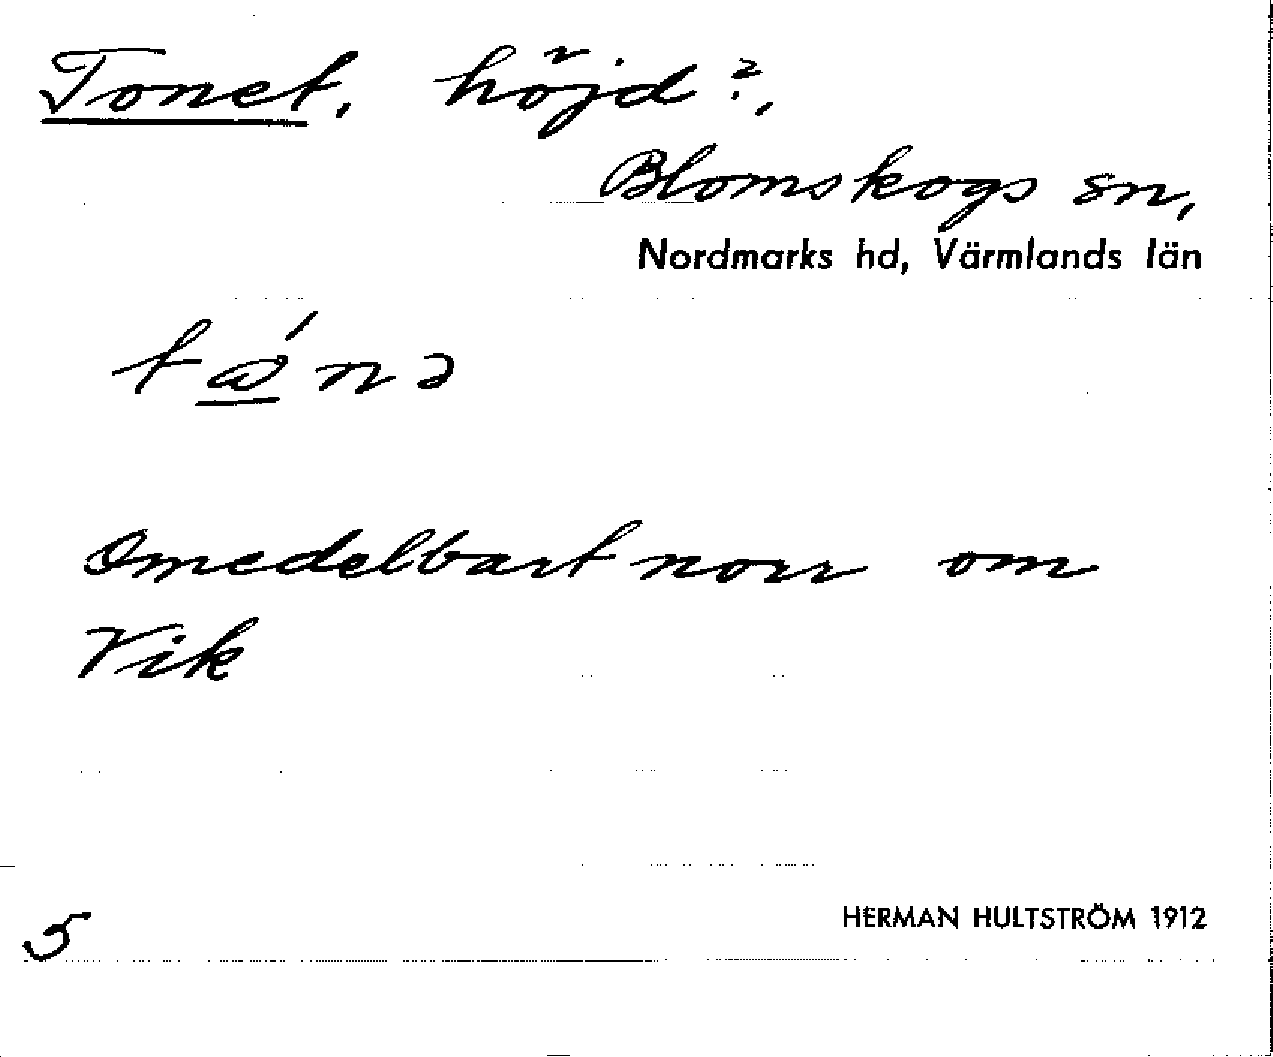 Tonet, höjd?,
Blomskogs sn,
Nordmarks hd, Värmlands län
Omedelbart norr om
Vik
5
HERMAN HULTSTRÖM 1912